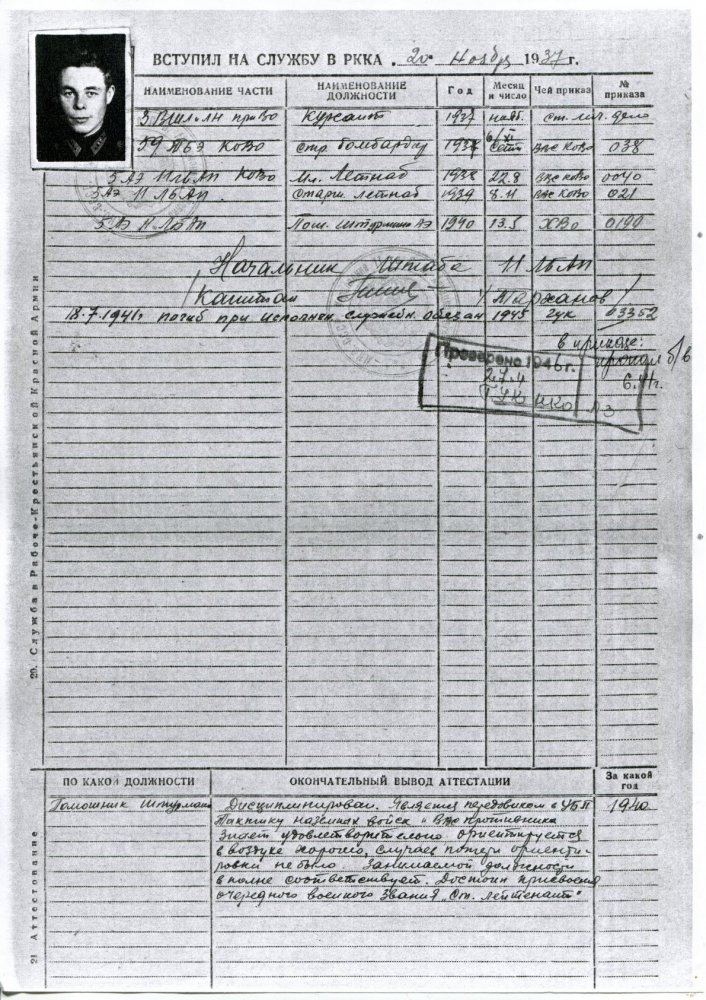 ВСТУПИЛ НА СЛУЖБУ В РККА „20“ Ноября 1937 г.
НАИМЕНОВАНИЕ ЧАСТИ НАИМЕНОВАНИЕ ДОЛЖНОСТИ Год Месяц и число Чей приказ № приказа
Курсант 1937 нояб. ст. лич. дело
6/XI
59 КОВО стр. бомбардир ВВС КОВО 038
5 АЭ КОВО Мл. Летнаб 1938 22.8 ВВС КОВО 0040
5 АЭ 11 ЛБАП. старш. летнаб 1939 8.11 ВВС КОВО 021
5 АЭ 11 ЛБАП Пом. штурмана АЭ 1940 13.5 ХВО 0190
Начальник Штаба 11 ЛБАП
Капитан /Тарханов/
18.7.1941г погиб при исполнен. служебн. обязан 1945 гук 03352
в приказе:
пропал б/в
6.41г.
Проверено 1946 г.
27.4
ГУК НКО
20. Служба в Рабоче-Крестьянской Красной Армии
ПО КАКОЙ ДОЛЖНОСТИ ОКОНЧАТЕЛЬНЫЙ ВЫВОД АТТЕСТАЦИИ За какой год
Помошник Штурмана Дисциплинирован. Является передовиком в УБП 1940
Тактику наземных войск и ВВС противника
знает удовлетворительно. ориентируется
в воздухе хорошо, случаев потери ориенти-
ровки не было. Занимаемой должности
вполне соответствует. Достоин присвоения
очередного военного звания „Ст. лейтенант“
21 Аттестование